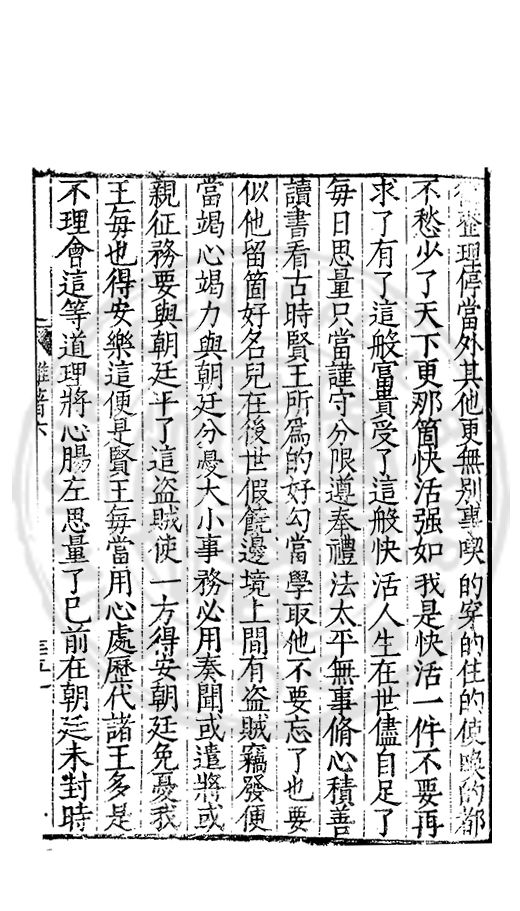 整理停當外其他更無別事喫的穿的住的使喚的都
不愁少了天下更那箇快活强如我是快活一件不要再
求了有了這般富貴受了這般快活人生在世儘自足了
每日思量只當謹守分限遵奉禮法太平無事脩心積善
讀書看古時賢王所爲的好勾當學取他不要忘了也要
似他留箇好名兒在後世假饒邊境上間有盗賊竊發便
當竭心竭力與朝廷分憂大小事務必用奏聞或遣將或
親征務要與朝廷平了這盗賊使一方得安朝廷免憂我
王每也得安樂這便是賢王每當用心處歷代諸王多是
不理會這等道理將心腸左思量了已前在朝廷未封時
雜著六